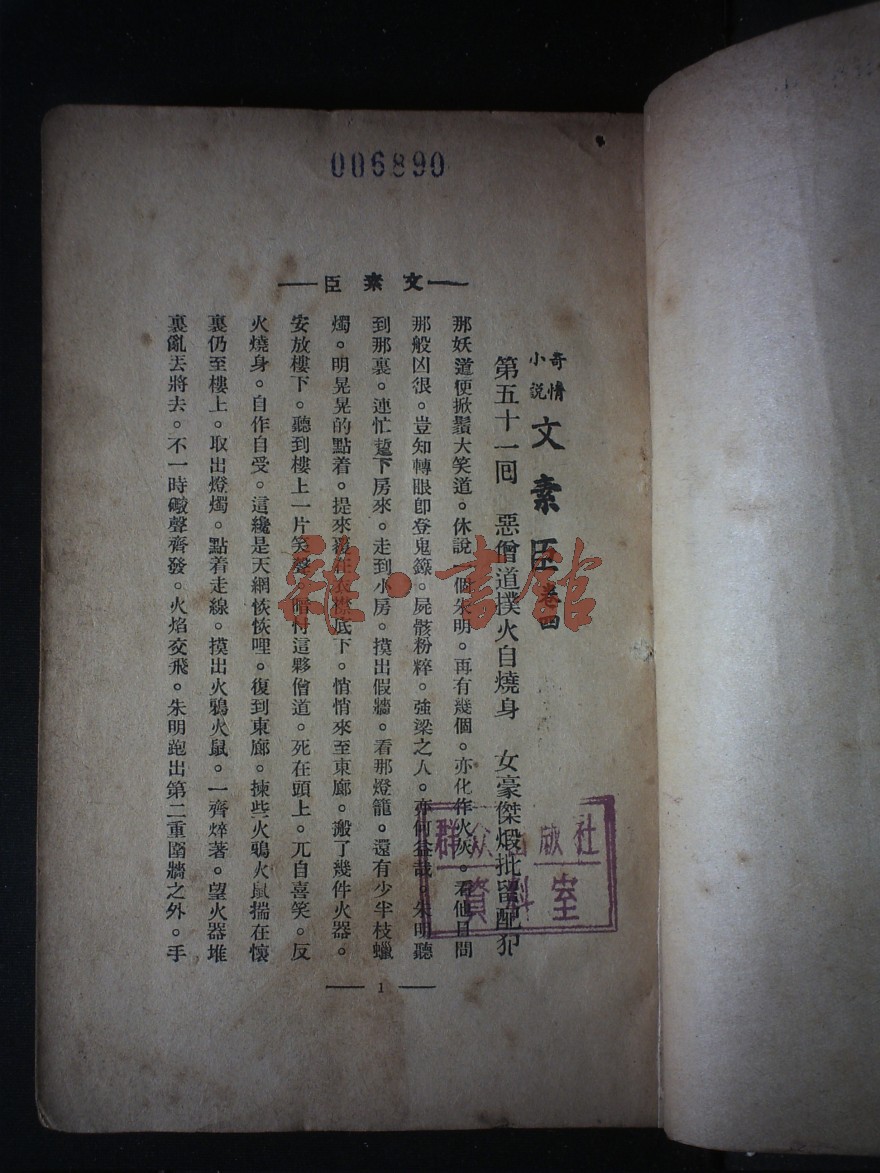 006890
文素臣
奇情小說 文素臣 卷四
第五十一囘 惡僧道撲火自燒身 女豪傑煅批留配犯
那妖道便掀鬚大笑道。休說一個朱明。再有幾個。亦化作火灰。看他日間
那般凶很。豈知轉眼卽登鬼籙。屍骸粉粹。強梁之人。亦何益哉。朱明聽
到那裏。連忙踅下房來。走到小房。摸出假牆。看那燈籠。還有少半枝蠟
燭。明晃晃的點着。提來在衣襟底下。悄悄來至東廊。搬了幾件火器。
安放樓下。聽到樓上一片笑聲。暗忖這夥僧道。死在頭上。兀自喜笑。反
火燒身。自作自受。這纔是天網恢恢哩。復到東廊。揀些火鴉火鼠揣在懷
裏仍至樓上。取出燈燭。點着走線。摸出火鴉火鼠。一齊焠著。望火器堆
裏亂丟將去。不一時礮聲齊發。火焰交飛。朱明跑出第二重圍牆之外。手
1
群众出版社
資料室
雜·書館